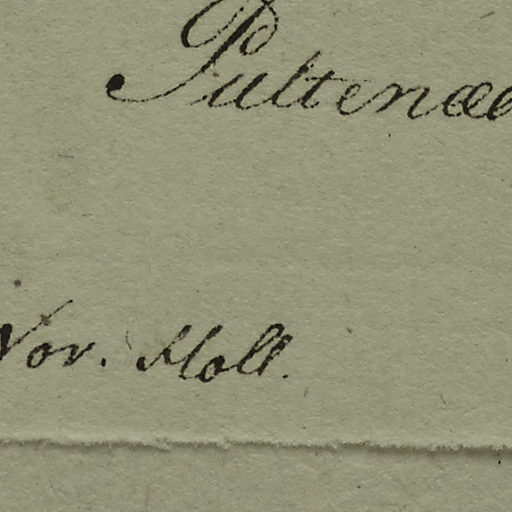 Pultenæa
Nov. Holl.